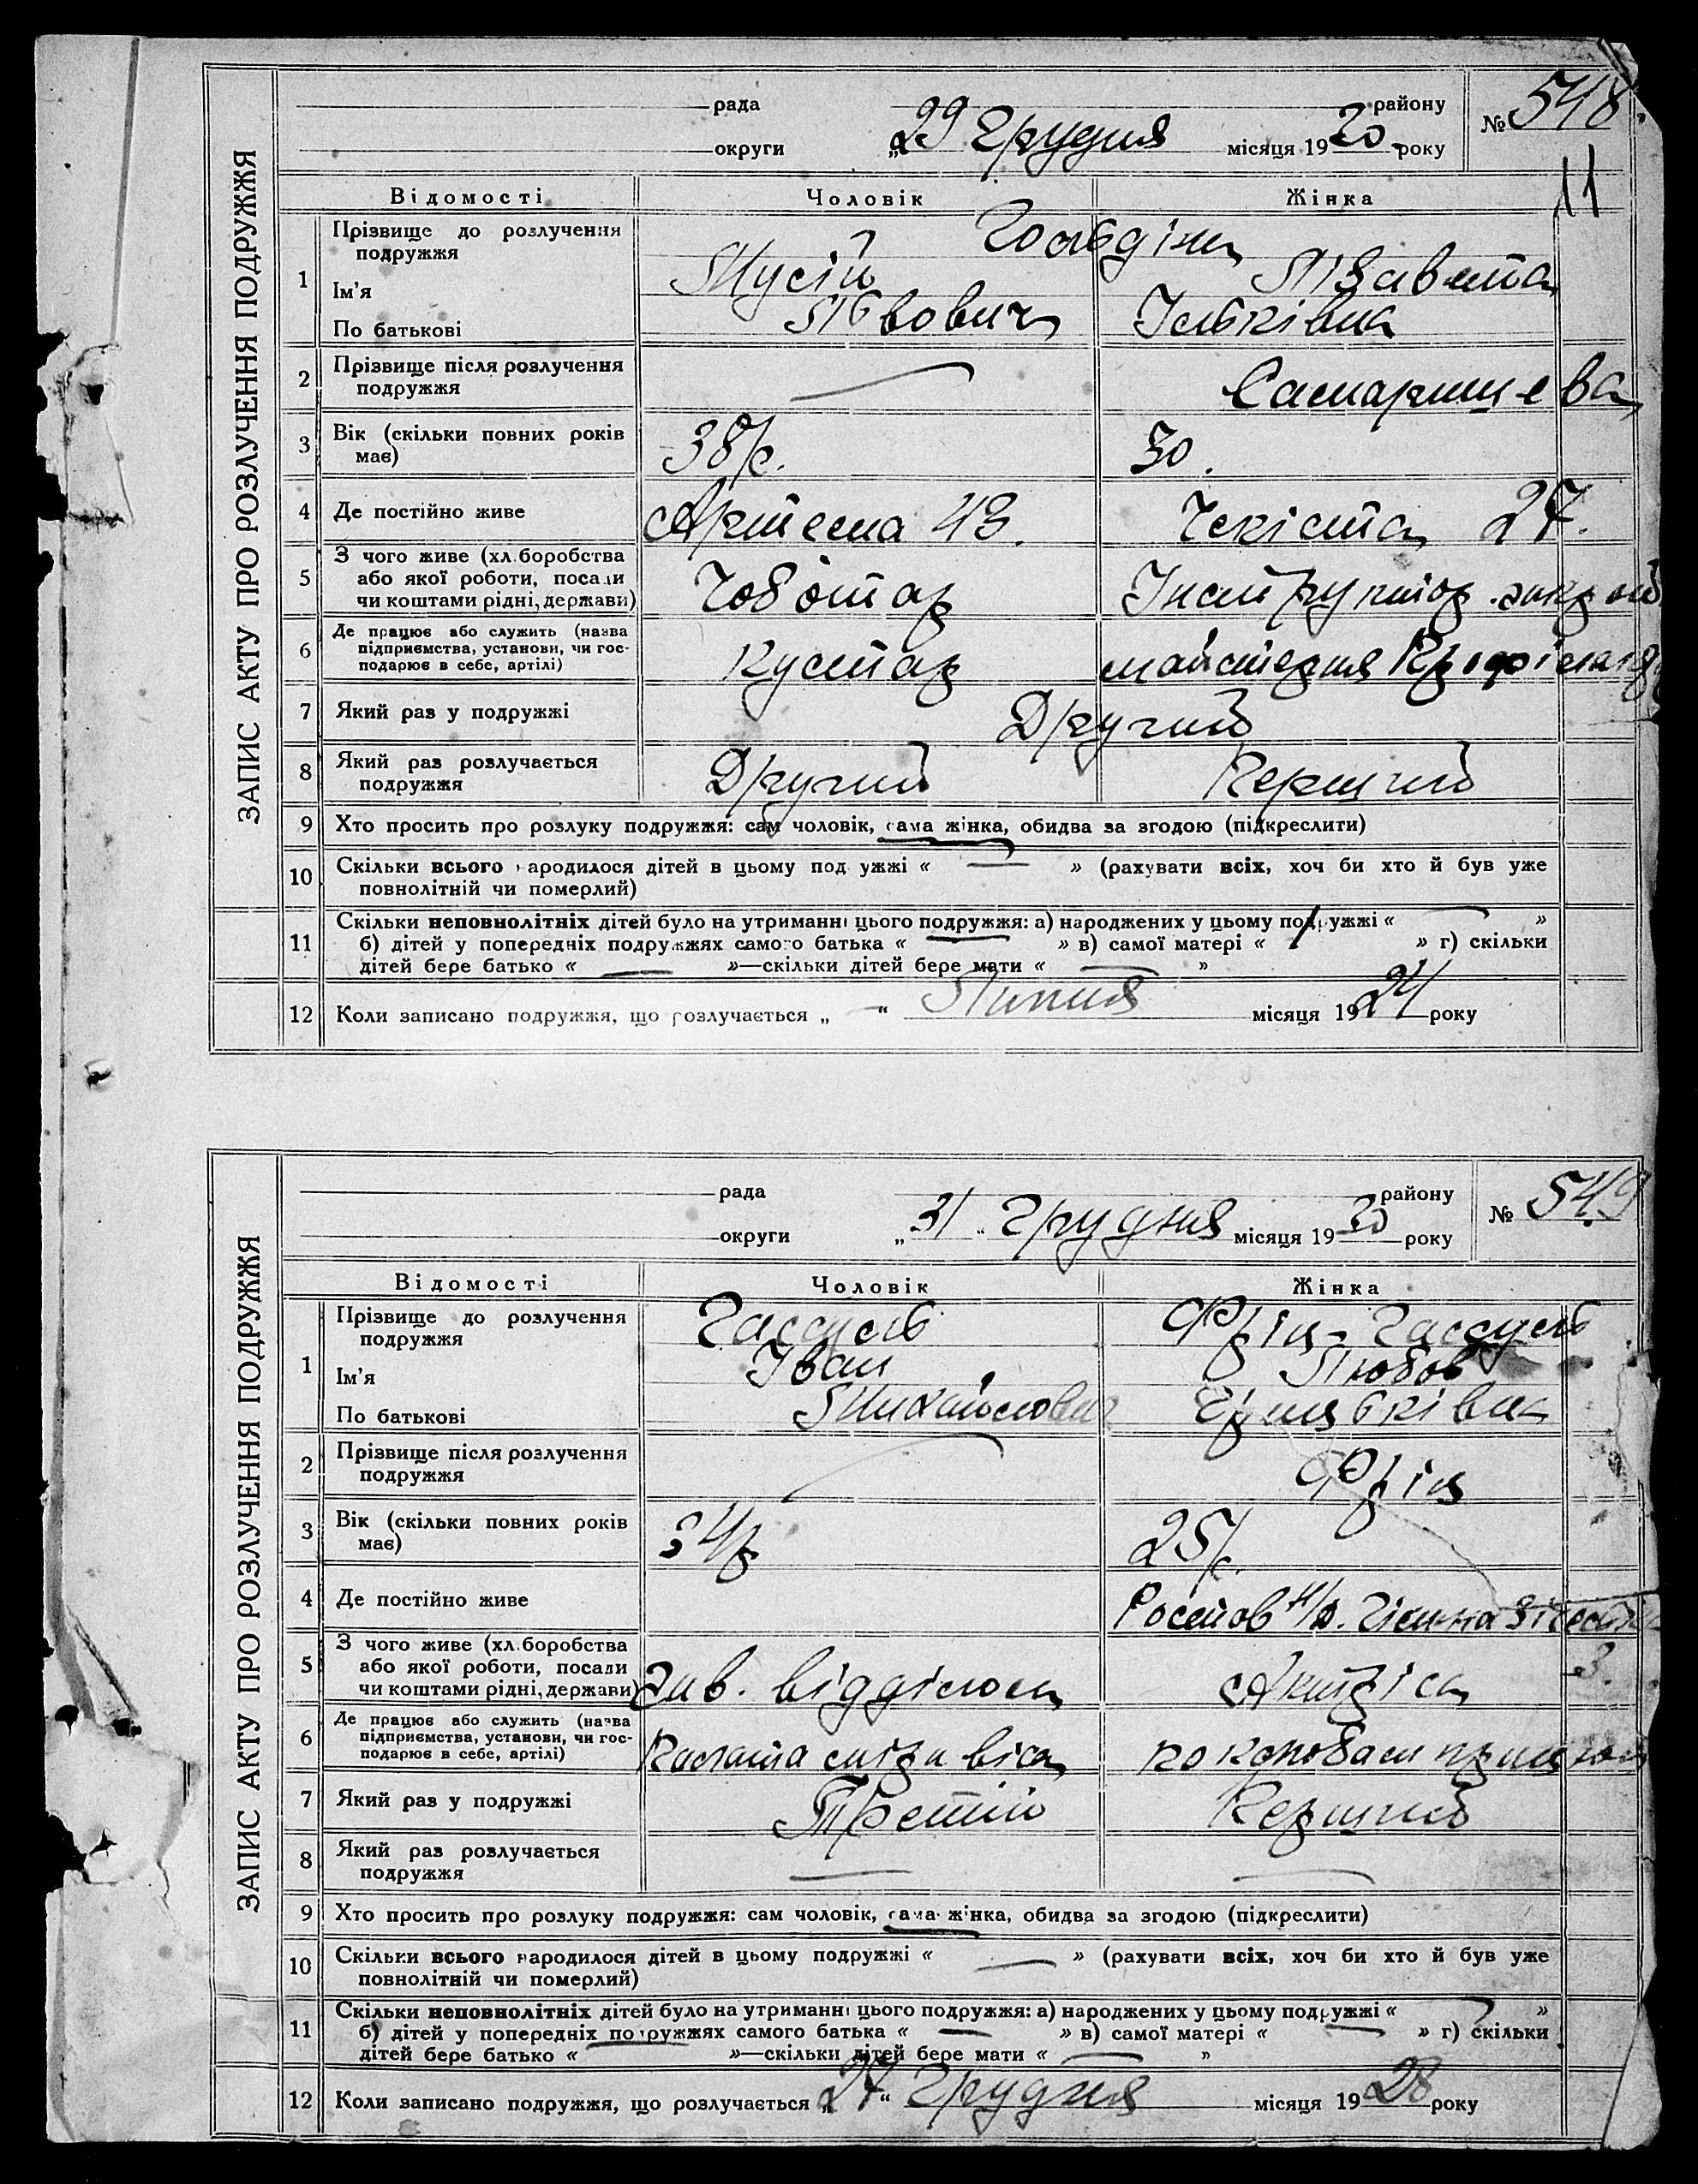 ЗАПИС АКТУ ПРО РОЗЛУЧЕННЯ ПОДРУЖЖЯ
рада району № 548
округи „29 Грудня місяця 1930 року
11
Відомості Чоловік Жінка
1 Прізвище до розлучення Гольдіни
подружжя
Ім'я Мусій Лізавета
По батькові Львович Ільківна
2 Прізвище після розлучення
подружжя
3 Вік (скільки повних років 38 р. 30.
має)
4 Де постійно живе Артема 43. Чекіста 27.
З чого живе (хл.боробства
5 або якої роботи, посади Чоботар Інструктор
чи коштами рідні, держави)
Де працює або служить (назва
6 підприємства, установи, чи гос- Кустар майстерня
подарює в себе, артілі)
7 Який раз у подружжі Другий
8 Який раз розлучається Другий Перший
подружжя
9 Хто просить про розлуку подружжя: сам чоловік, сама жінка, обидва за згодою (підкреслити)
10 Скільки всього народилося дітей в цьому подружжі « — » (рахувати всіх, хоч би хто й був уже
повнолітній чи померлий)
Скільки неповнолітніх дітей було на утриманні цього подружжя: а) народжених у цьому подружжі « — »
11 б) дітей у попередніх подружжях самого батька « — » в) самої матері « » г) скільки
дітей бере батько « — »—скільки дітей бере мати « — »
12 Коли записано подружжя, що розлучається „ — “ Липня місяця 1924 року
ЗАПИС АКТУ ПРО РОЗЛУЧЕННЯ ПОДРУЖЖЯ
рада району № 549
округи „31“ Грудня місяця 1930 року
Відомості Чоловік Жінка
1 Прізвище до розлучення Гассуль Фріц-Гассуль
подружжя
Ім'я Іван Любов
По батькові Михайлович Грицьківна
2 Прізвище після розлучення Фріц
подружжя
3 Вік (скільки повних років 34 р 25 р.
має)
4 Де постійно живе Ростов н/д.
З чого живе (хл.боробства 3.
5 або якої роботи, посади Зав. відділом Актріса
чи коштами рідні, держави)
Де працює або служить (назва
6 підприємства, установи, чи гос-
подарює в себе, артілі)
7 Який раз у подружжі Третій Перший
8 Який раз розлучається — —
подружжя
9 Хто просить про розлуку подружжя: сам чоловік, сама жінка, обидва за згодою (підкреслити)
10 Скільки всього народилося дітей в цьому подружжі « — » (рахувати всіх, хоч би хто й був уже
повнолітній чи померлий)
Скільки неповнолітніх дітей було на утриманні цього подружжя: а) народжених у цьому подружжі « — »
11 б) дітей у попередніх подружжях самого батька « — » в) самої матері « — » г) скільки
дітей бере батько « — »—скільки дітей бере мати « — »
12 Коли записано подружжя, що розлучається „27“ Грудня місяця 1928 року